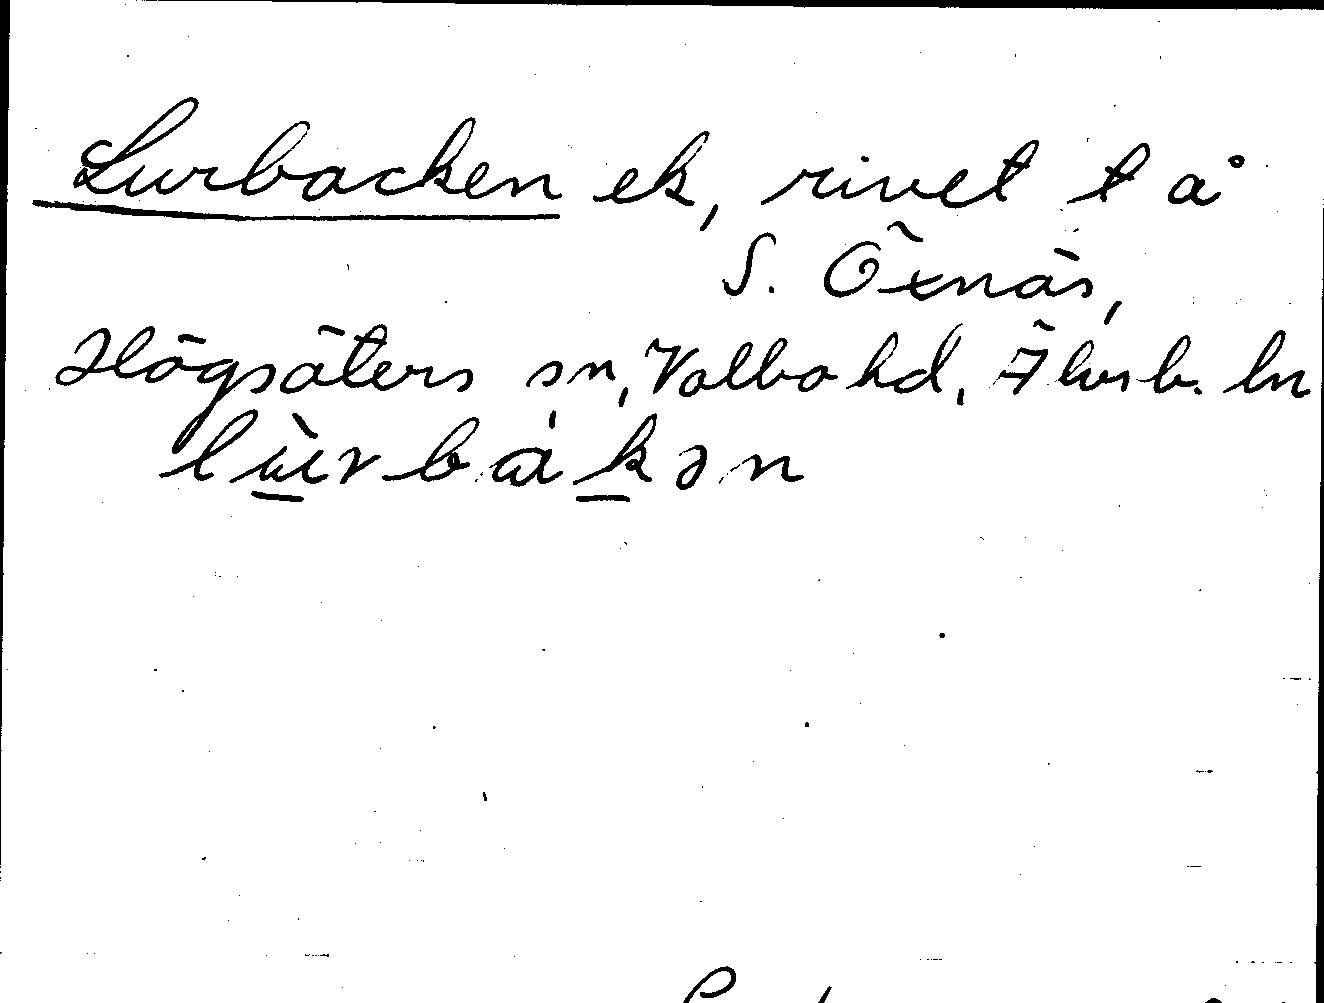 Lurbacken ek, rivet t å
S. Öxnäs,
Högsäters sn, Valbo hd, Älvsb. ln
lùrbákən